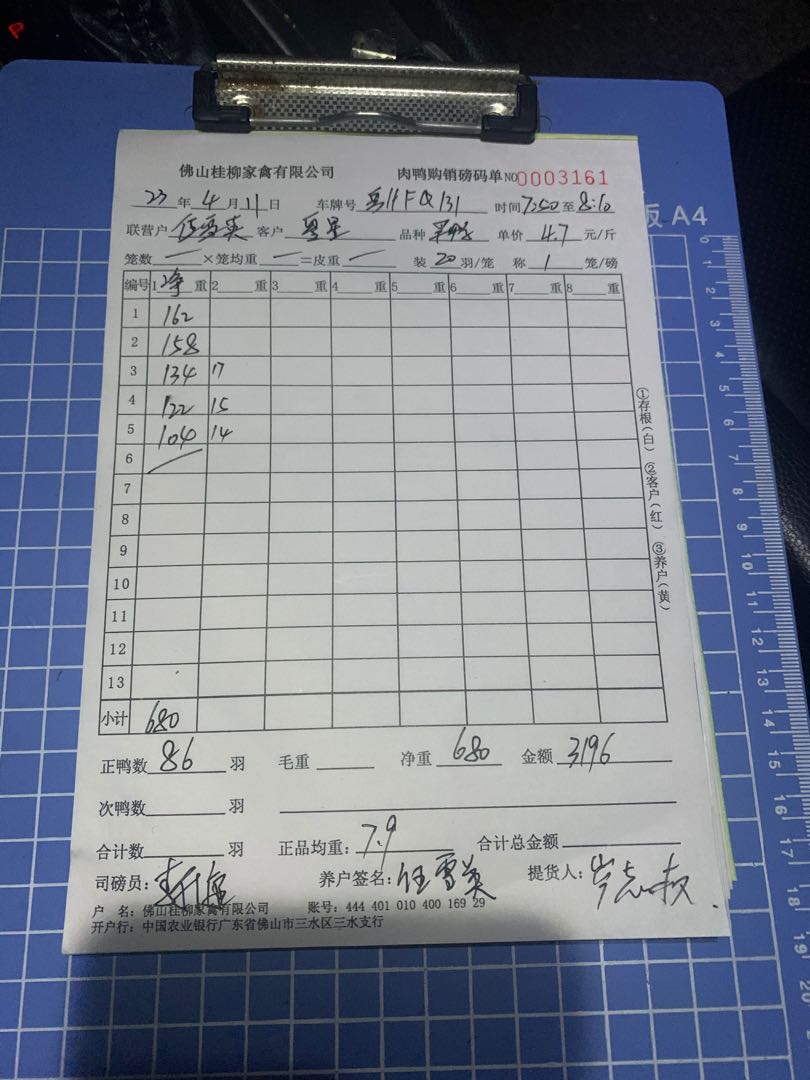 佛山桂柳家禽有限公司 肉鸭购销磅码单 NO 0003161
23 年 4 月 11 日 车牌号 粤H FQ131 时间 7:50 至 8:10
联营户 任雪英 客户 粤星 品种 单价 4.7 元/斤
笼数 — ×笼均重 — =皮重 — 装 20 羽/笼 称 1 笼/磅
编号 1 净 重 2 重 3 重 4 重 5 重 6 重 7 重 8 重
1 162
2 158
3 134 17
4 122 15
5 104 14
6
7
8
9
10
11
12
13
小计 680
正鸭数 86 羽 毛重 净重 680 金额 3196
次鸭数 羽
合计数 羽 正品均重: 7.9 合计总金额
司磅员: 养户签名: 任雪英 提货人:
户 名: 佛山桂柳家禽有限公司 账号: 444 401 010 400 169 29
开户行: 中国农业银行广东省佛山市三水区三水支行
①存根(白) ②客户(红) ③养户(黄)
板 A4
0
1
2
3
4
5
6
7
8
9
10
11
12
13
14
15
16
17
18
19
20